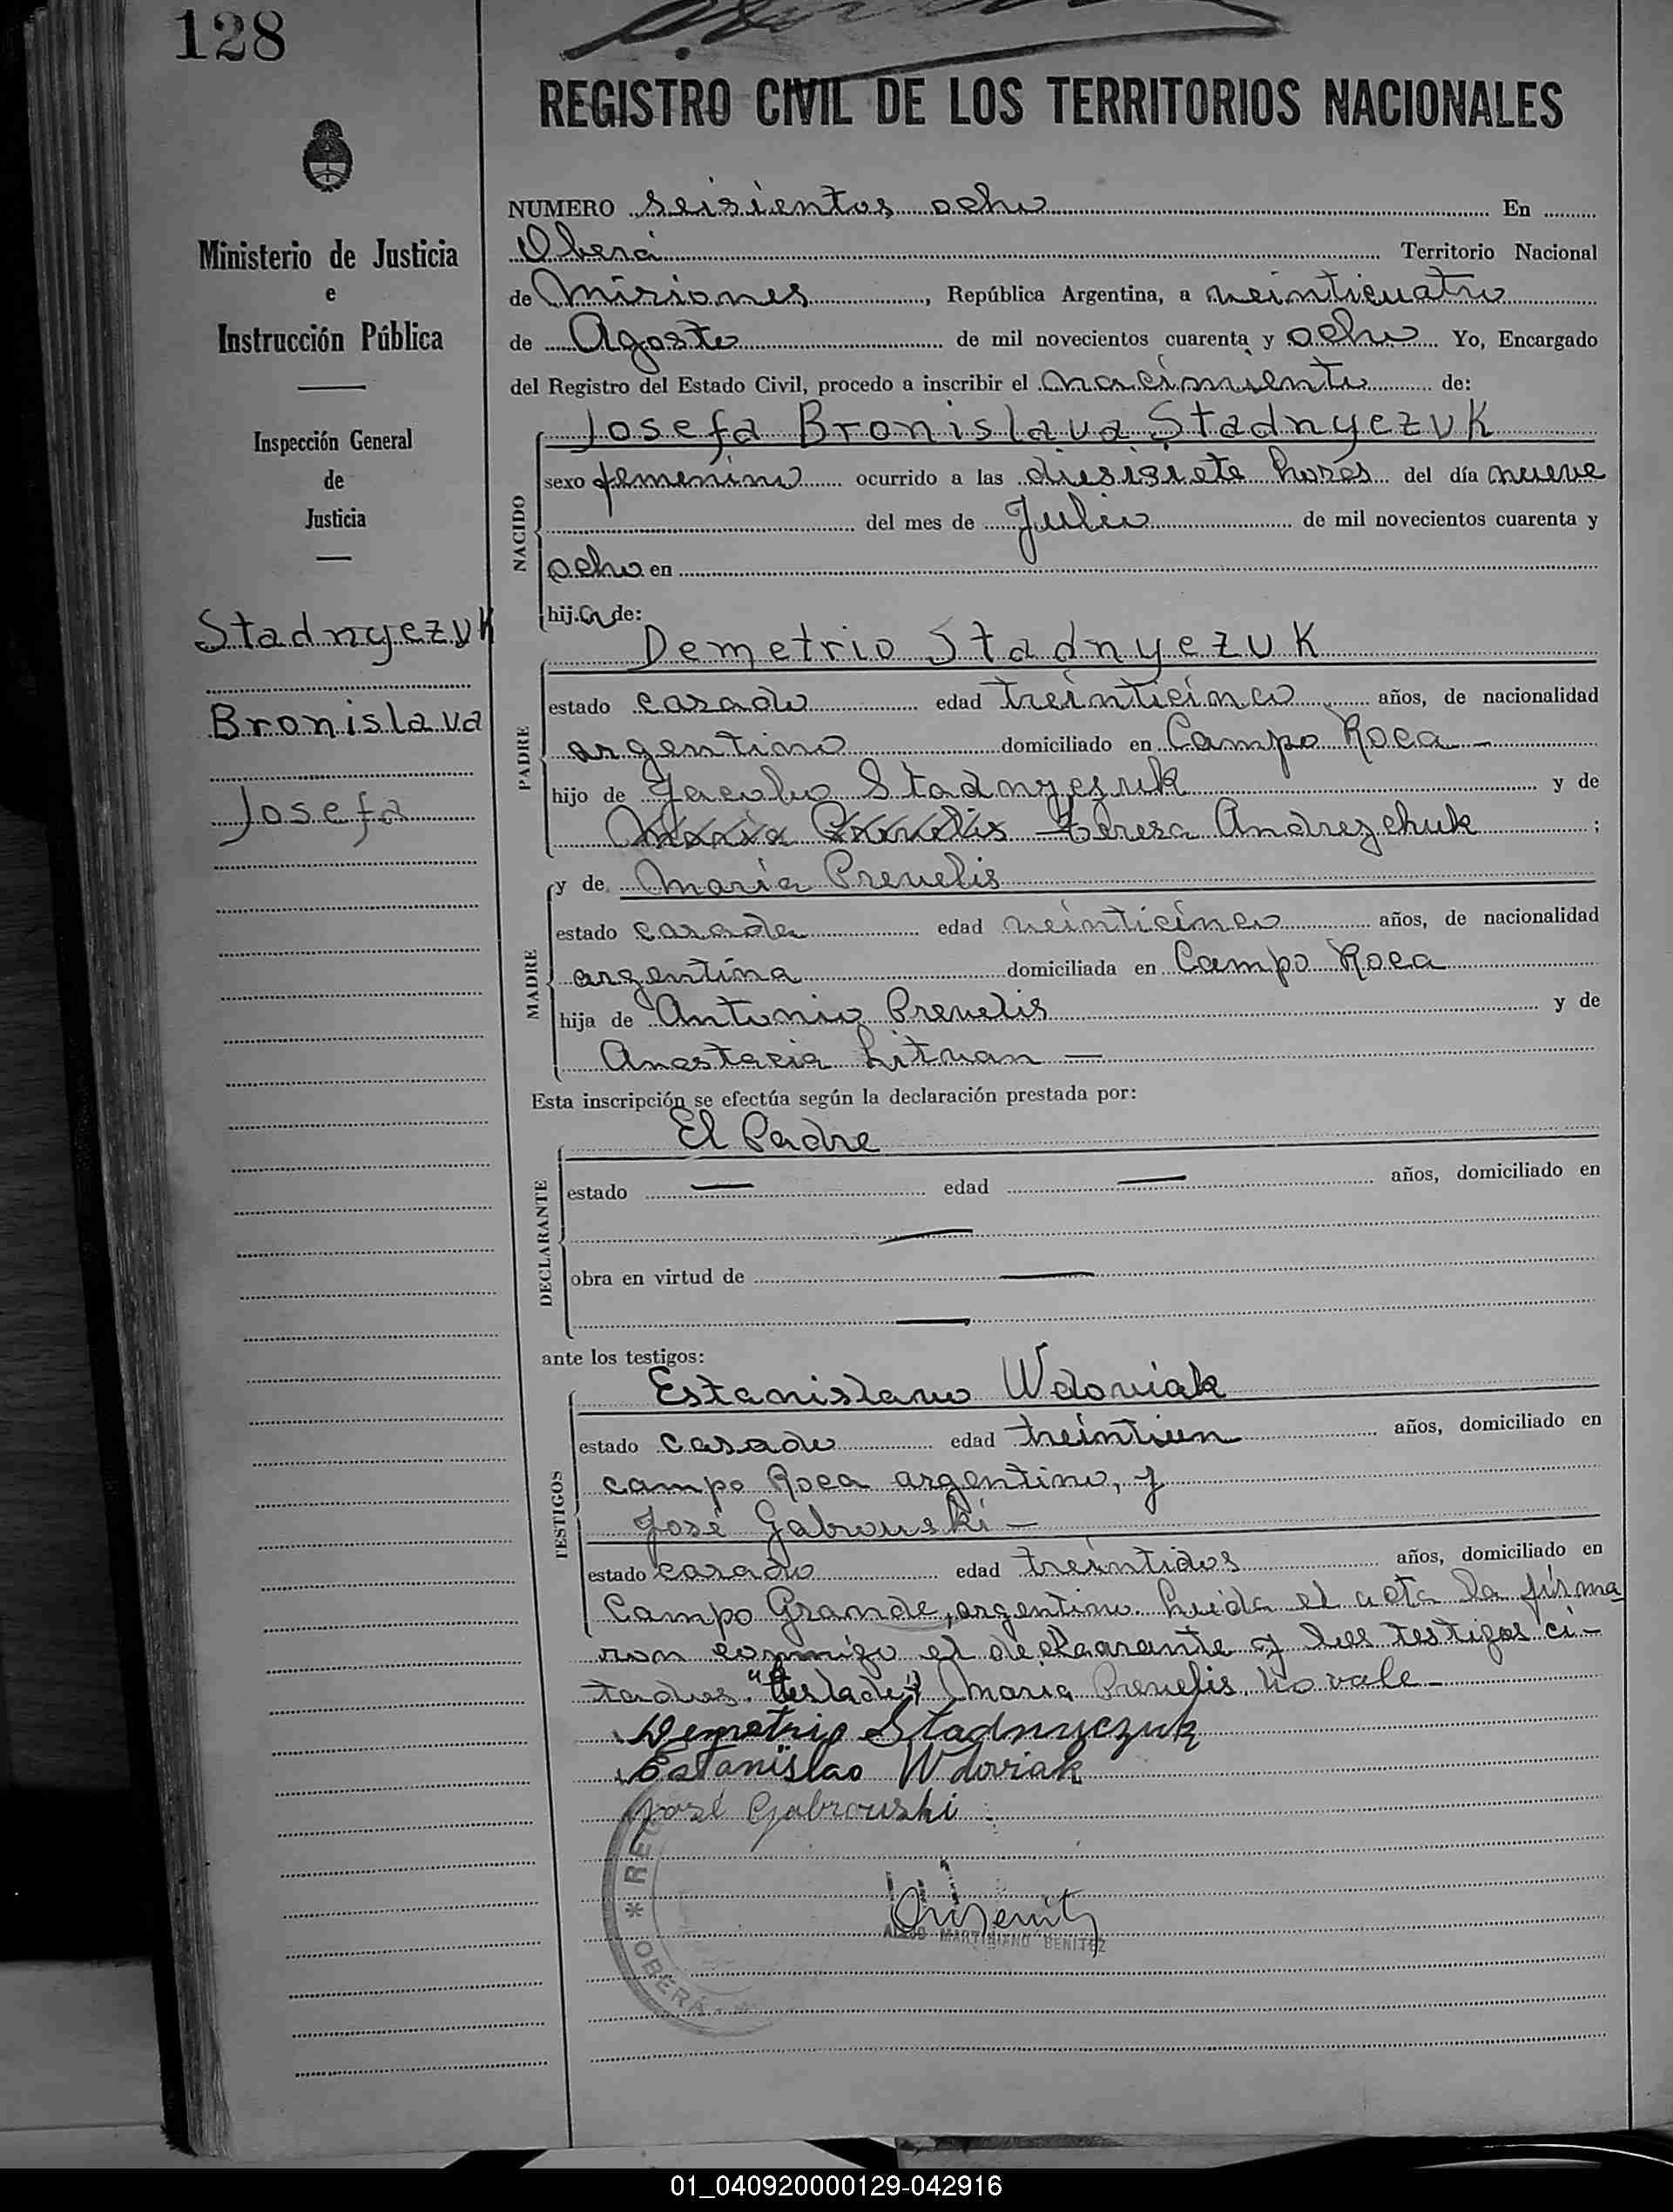 128
REGISTRO CIVIL DE LOS TERRITORIOS NACIONALES
Ministerio de Justicia
e
Instrucción Pública
Inspección General
de
Justicia
Stadnyczuk
Bronislava
Josefa
NUMERO seisientos ocho En
Oberá Territorio Nacional
de Misiones, República Argentina, a veinticuatro
de Agosto de mil novecientos cuarenta y ocho Yo, Encargado
del Registro del Estado Civil, procedo a inscribir el nacimiento de:
NACIDO
Josefa Bronislava Stadnyczuk
sexo femenino ocurrido a las diesisiete horas del día nueve
del mes de Julio de mil novecientos cuarenta y
ocho en
hija de:
PADRE
Demetrio Stadnyczuk
estado casado edad treinticinco años, de nacionalidad
argentino domiciliado en Campo Roca —
hijo de Jacobo Stadnyczuk y de
Maria Prevelis Teresa Andrezchuk ;
MADRE
y de Maria Prevelis
estado casada edad veinticinco años, de nacionalidad
argentina domiciliada en Campo Roca
hija de Antonio Prevelis y de
Anastacia Litvan —
Esta inscripción se efectúa según la declaración prestada por:
DECLARANTE
El Padre
estado — edad — años, domiciliado en
—
obra en virtud de —
—
ante los testigos:
TESTIGOS
Estanislavo Wdoviak
estado casado edad treintiun años, domiciliado en
campo Roca argentino, y
José Gabrouski —
estado casado edad treintidos años, domiciliado en
Campo Grande, argentino. Leida el acta la firma
ron conmigo el declarante y los testigos ci-
tados. Maria Prevelis, No vale —
Demetrio Stadnyczuk
Estanislao Wdoviak
José Gabrouski
MARTINIANO BENITEZ
* REG
OBERÁ
01_040920000129-042916